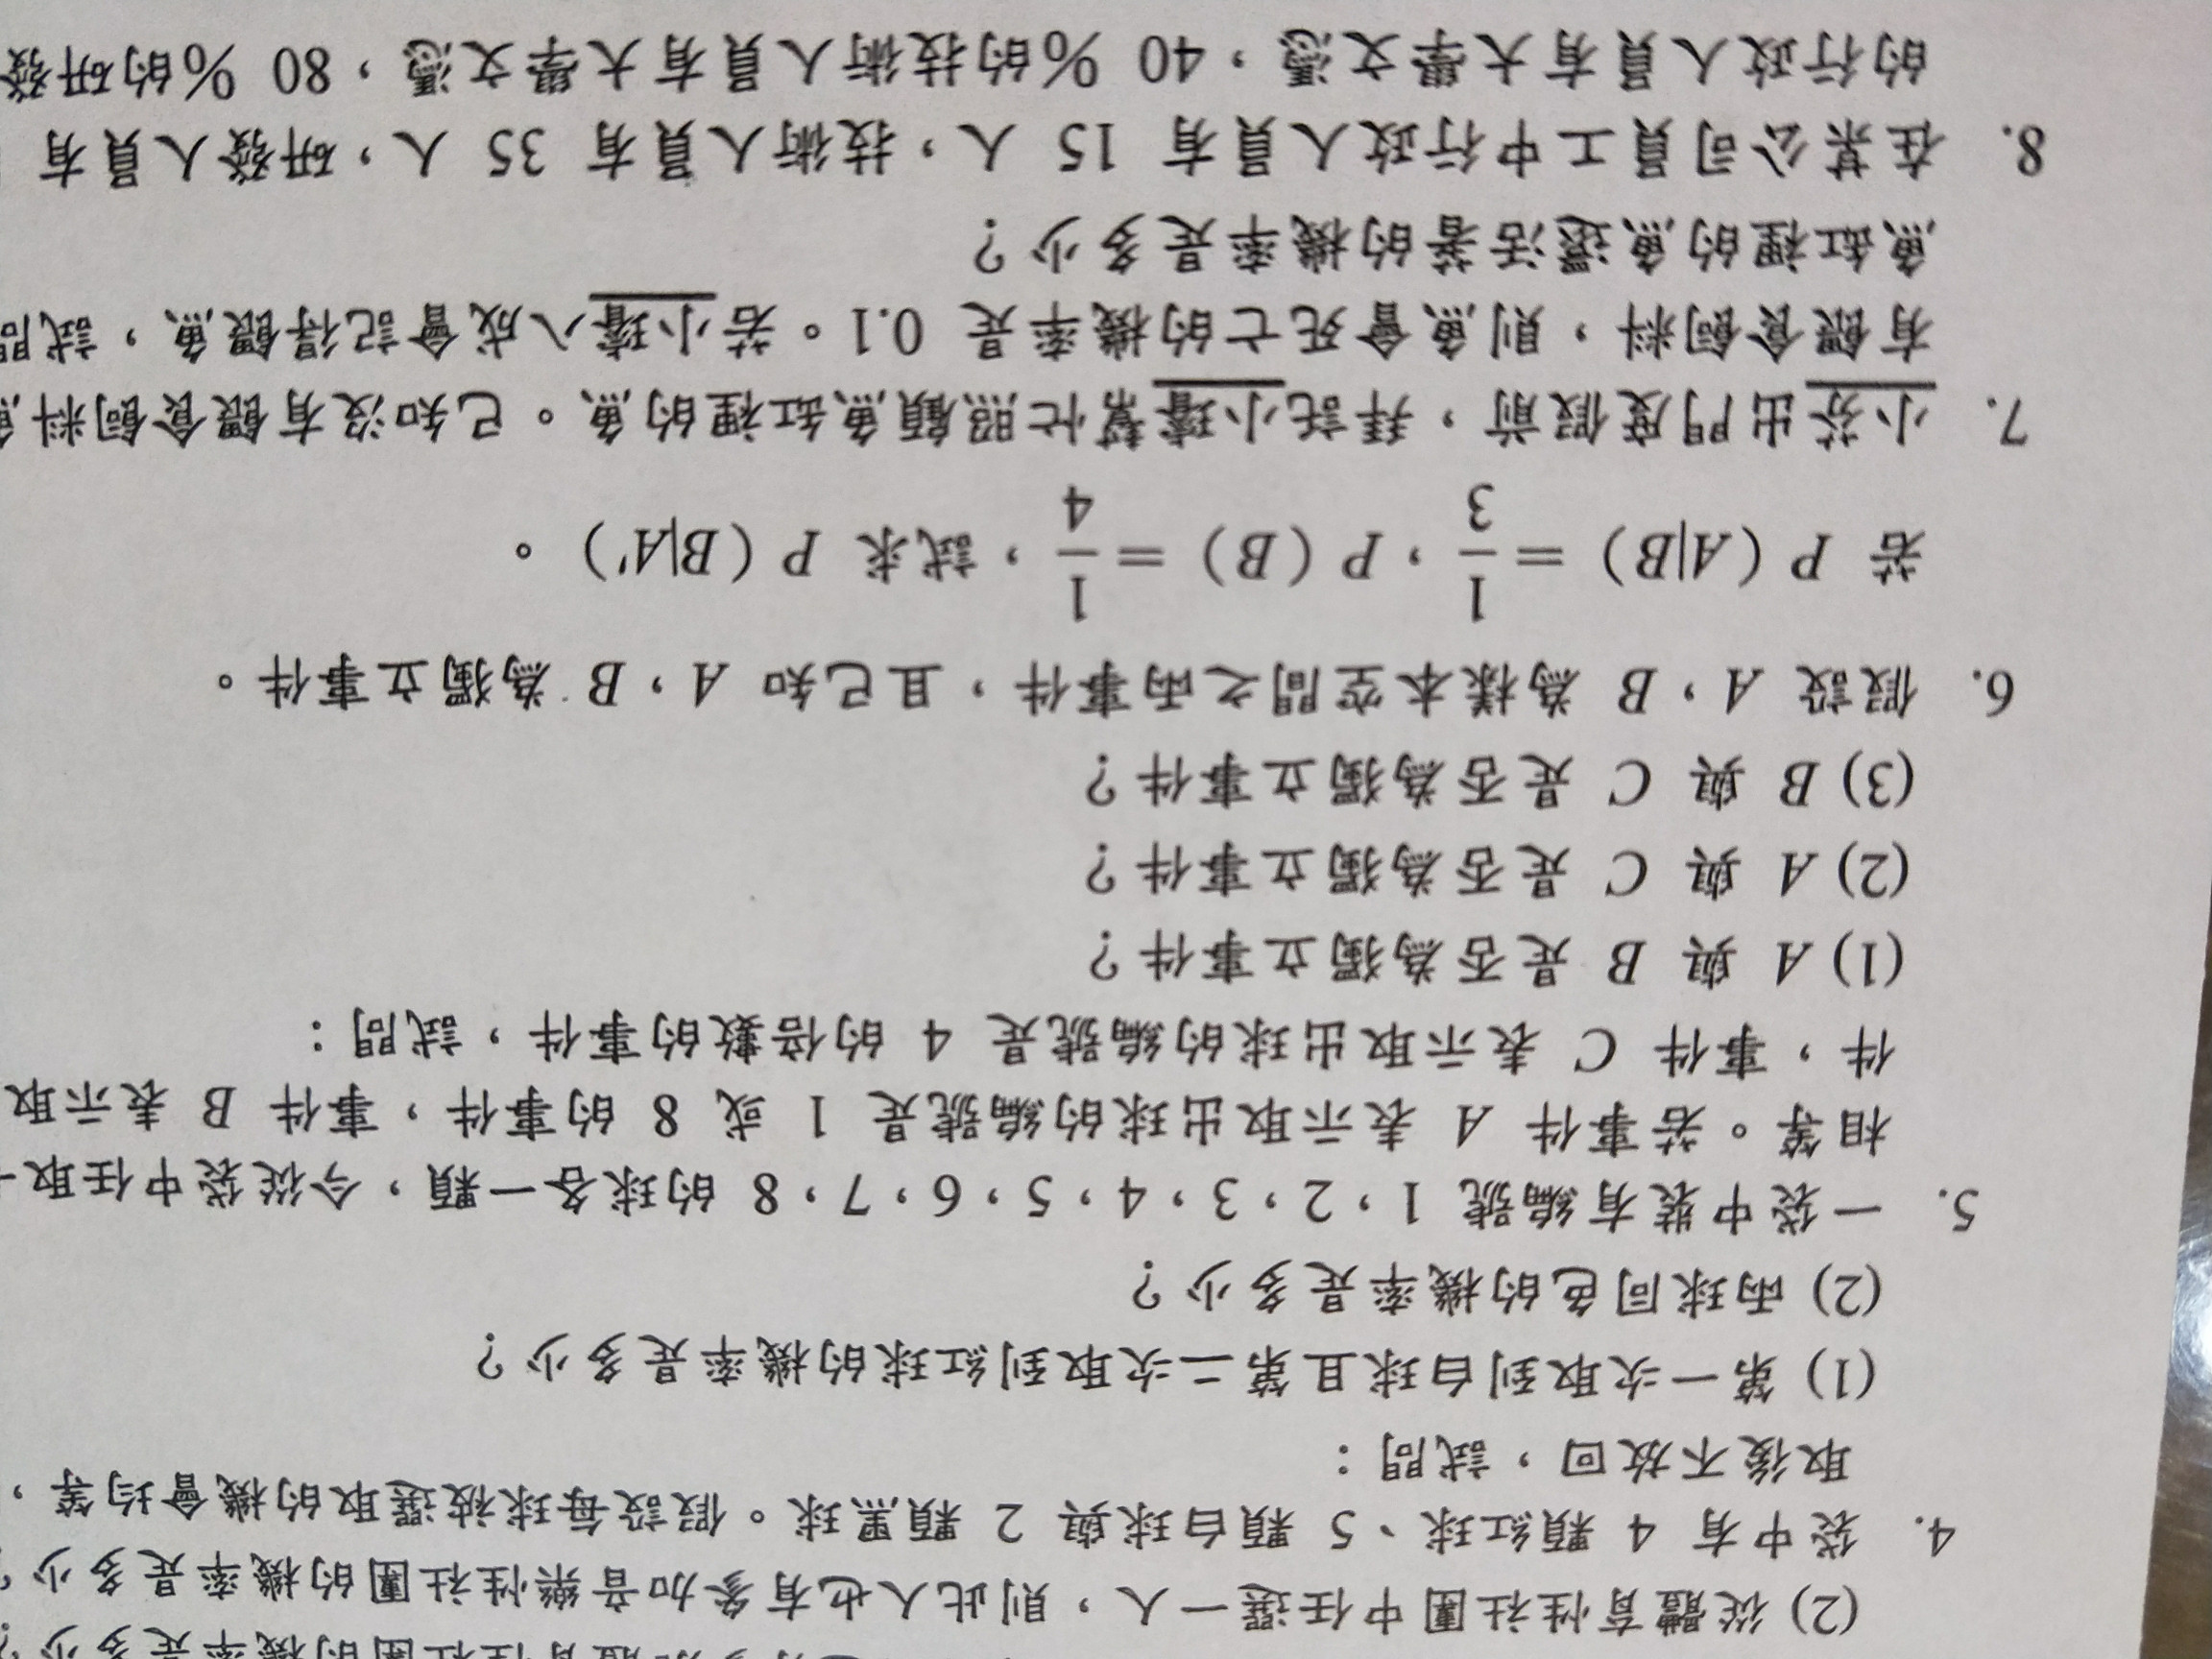 (2) 從體育性社團中任選一人，則此人也有參加音樂性社團的機率是多少？
4. 袋中有 4 顆紅球、5 顆白球與 2 顆黑球。假設每球被選取的機會均等，
取後不放回，試問：
(1) 第一次取到白球且第二次取到紅球的機率是多少？
(2) 兩球同色的機率是多少？
5. 一袋中裝有編號 1，2，3，4，5，6，7，8 的球各一顆，今從袋中任取一
相等。若事件 A 表示取出球的編號是 1 或 8 的事件，事件 B 表示取
件，事件 C 表示取出球的編號是 4 的倍數的事件，試問：
(1) A 與 B 是否為獨立事件？
(2) A 與 C 是否為獨立事件？
(3) B 與 C 是否為獨立事件？
6. 假設 A，B 為樣本空間之兩事件，且已知 A，B 為獨立事件。
若 P (A|B) = 1/3，P (B) = 1/4，試求 P (B|A')。
7. 小芬出門度假前，拜託小璿幫忙照顧魚缸裡的魚。已知沒有餵食飼料
有餵食飼料，則魚會死亡的機率是 0.1。若小璿八成會記得餵魚，試問
魚缸裡的魚還活著的機率是多少？
8. 在某公司員工中行政人員有 15 人，技術人員有 35 人，研發人員有
的行政人員有大學文憑，40 %的技術人員有大學文憑，80 %的研發